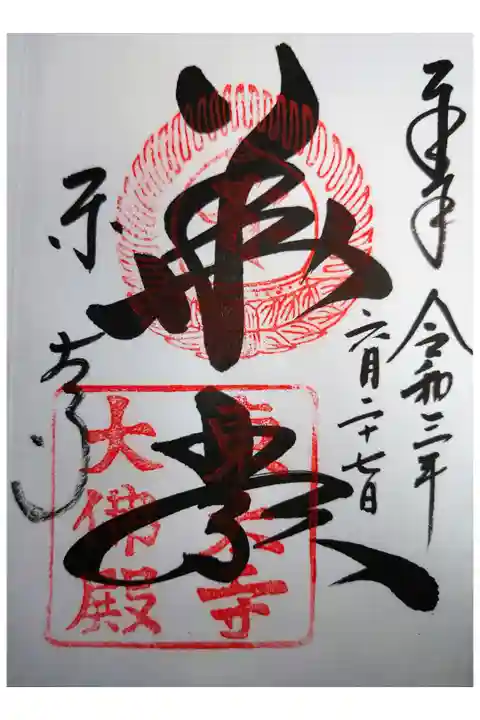 奉拝 令和三年
六月二十七日
華厳
東大寺
大佛殿
東大寺